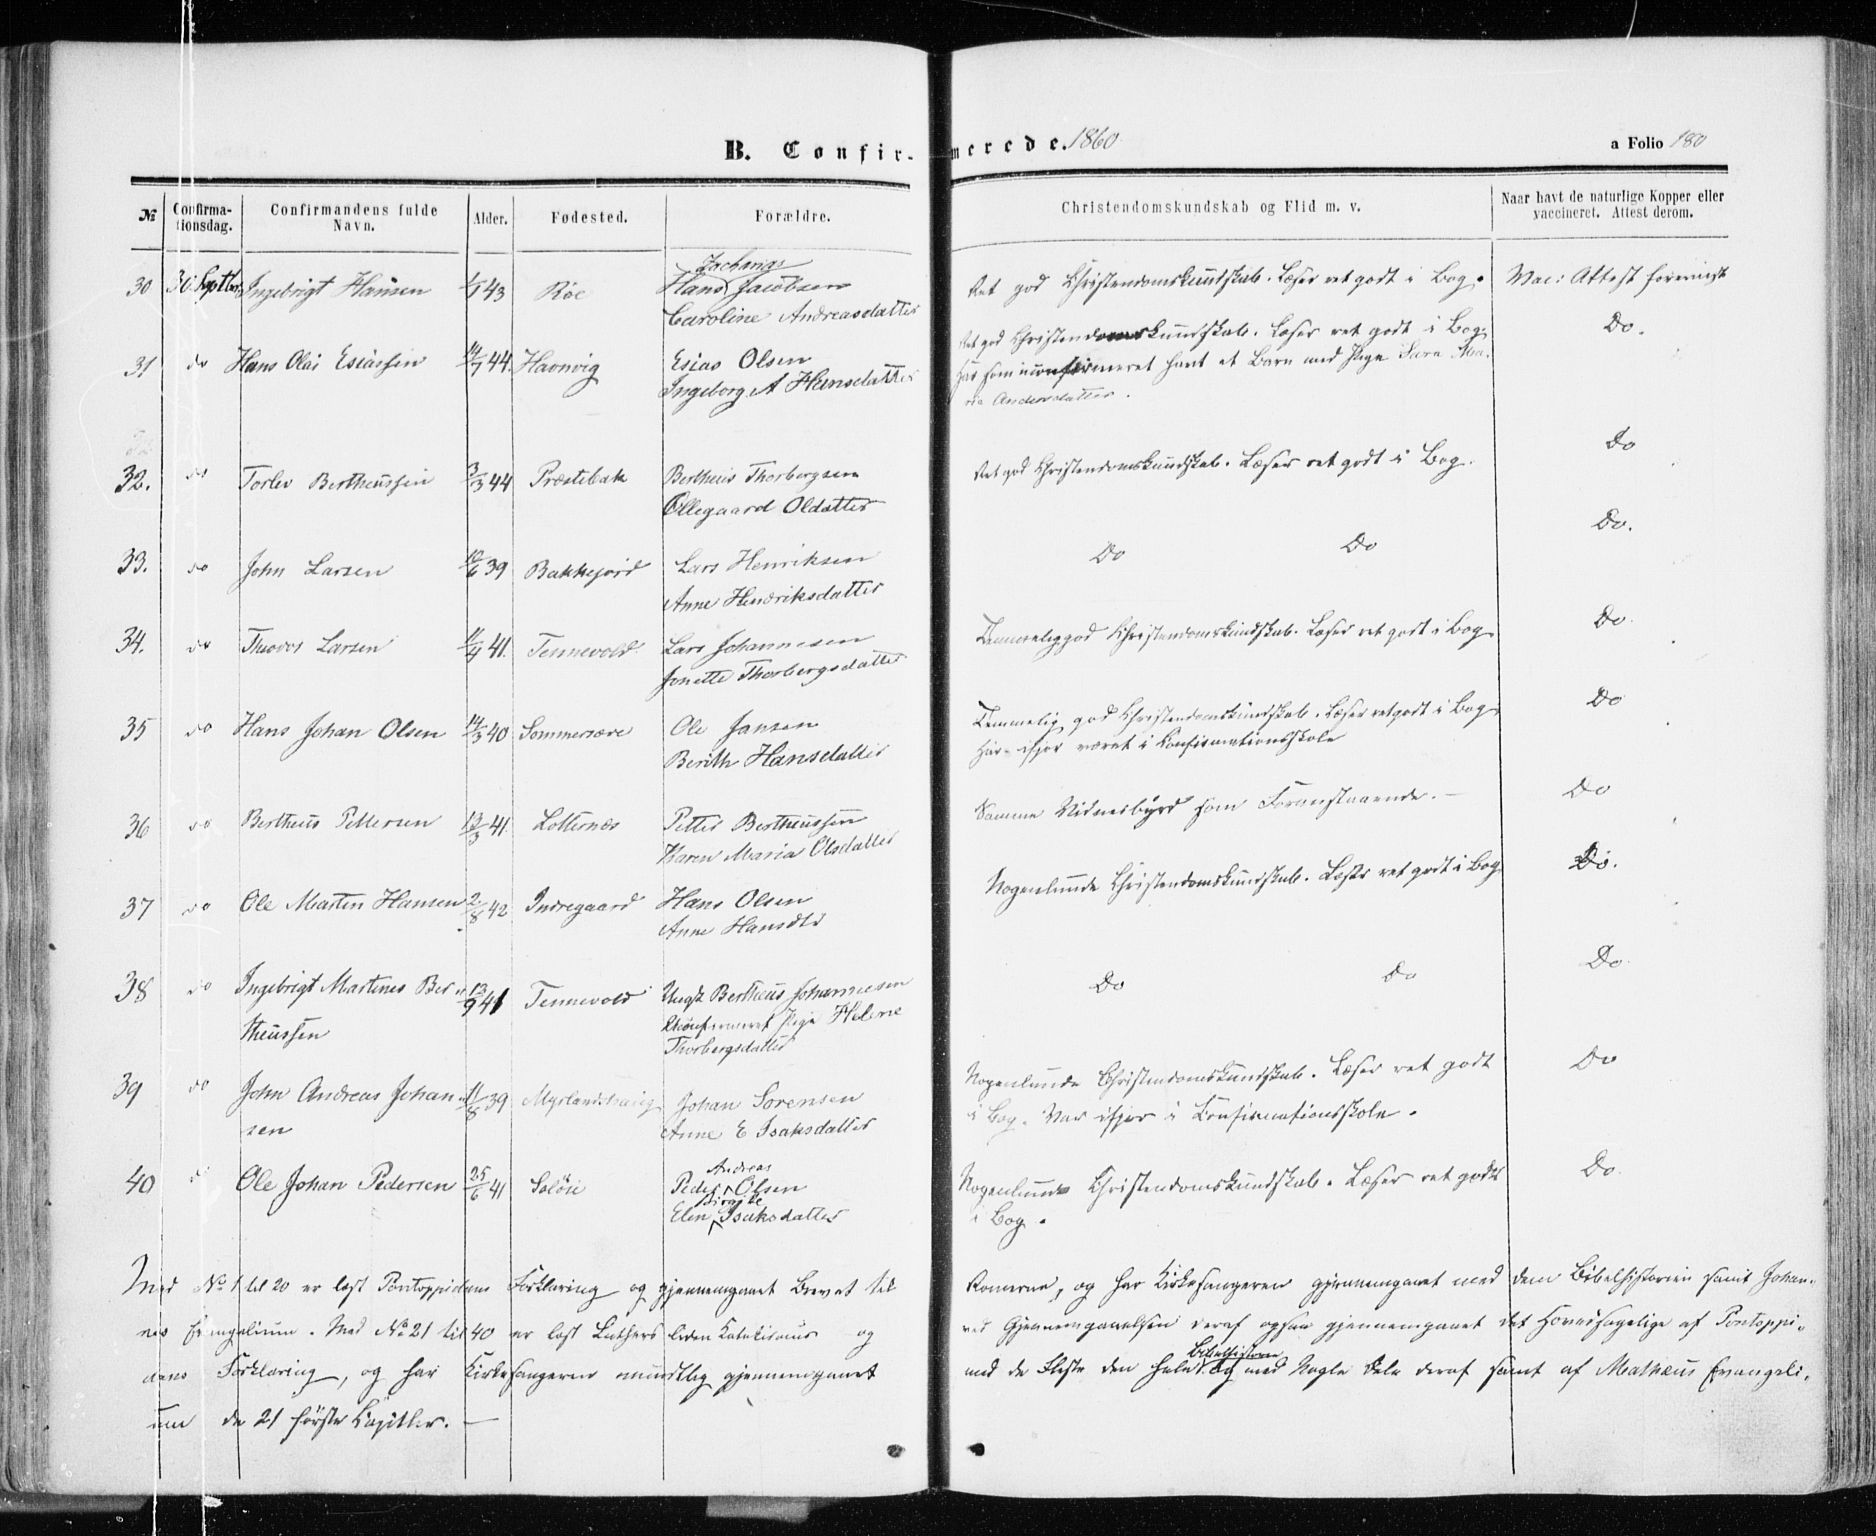 B. Confirmerede. 1860
a Folio 180
№ Confirmationsdag. Confirmandens fulde Navn. Alder. Fødested. Forældre. Christendomskundskab og Flid m. v. Naar havt de naturlige Kopper eller vaccineret. Attest derom.
30 30 Septbr Ingebrigt Hansen 43 Röe Hans Zacharias Jacobsen Ret god Christendomskundskab. Læser ret godt i Bog. Vac: Attest foreviist
Caroline Andreasdatter
31 do Hans Olai Esiassen 14/7 44. Havnvig Esias Olsen Ret god Christendomskundskab. Læser ret godt i Bog. Do.
Ingeborg A Hansdatter Har som uconfirmeret havt et Barn med Pige Sara Ma-
ria Andersdatter.
32. do Torlev Bertheussen 3/3 44 Præstebak Bertheus Thorbergsen Ret god Christendomskundskab. Læser ret godt i Bog. Do
Ellegaard Oldatter
33. do John Larsen 10/6 39 Bakkejord Lars Henriksen Do Do Do.
Anne Hendriksdatter
34. do Larsen 41. Tennevold Lars Johannesen Temmelig god Christendomskundskab. Læser ret godt i Bog. Do
Jonette Thorbergsdatter
35 do Hans Johan Olsen 14/3 40 Ole Jansen Temmelig god Christendomskundskab. Læser ret godt i Bog. Do
Berith Hansdatter Har ifjor været i Confirmationsskole
36 do Bertheus Pettersen 13/3 41. Petter Bertheussen Samme Vidnesbyrd som Foranstaaende. — Do
Karen Maria Olsdatter
37 do Ole Martin Hansen 2/8 42 Indregaard Hans Olsen Nogenlunde Christendomskundskab. Læser ret godt i Bog. Do.
Anne Hansdtr
38 do Ingebrigt Martines Ber- 13/9 41 Tennevold Ungk Bertheus Johannesen Do Do Do
theussen Ukonfirmeret Pige Helene
Thorbergsdatter
39 do John Andreas Johan- 11/8 39 Myrlandshaug Johan Sorensen Nogenlunde Christendomskundskab. Læser ret godt Do
sen Anne E Isaksdatter i Bog. Var ifjor i Confirmationsskole.
40 do Ole Johan Pedersen 25/6 41 Soløie Peder Andreas Olsen Nogenlunde Christendomskundskab. Læser ret godt Do
Elen Birgitte Isaksdatter i Bog.
Med No 1 til 20 er læst Pontoppidans Forklaring og gjennemgaaet Brevet til
Romerne, og har Kirkesangeren gjennemgaaet med dem Bibelhistorien samt Johan-
nes Evangelium. Med No 21 til 40 er læst Luthers liden Katekismus og
ved Gjennemgaaelsen deraf ogsaa gjennemgaaet det Hovedsagelige af Pontoppi-
dans Forklaring, og har Kirkesangeren mundtlig gjennemgaaet
med de Fleste den hele Bibelhistorie og med Nogle Dele deraf samt af Mathæus Evangeli-
um de 21 første Kapitler. —